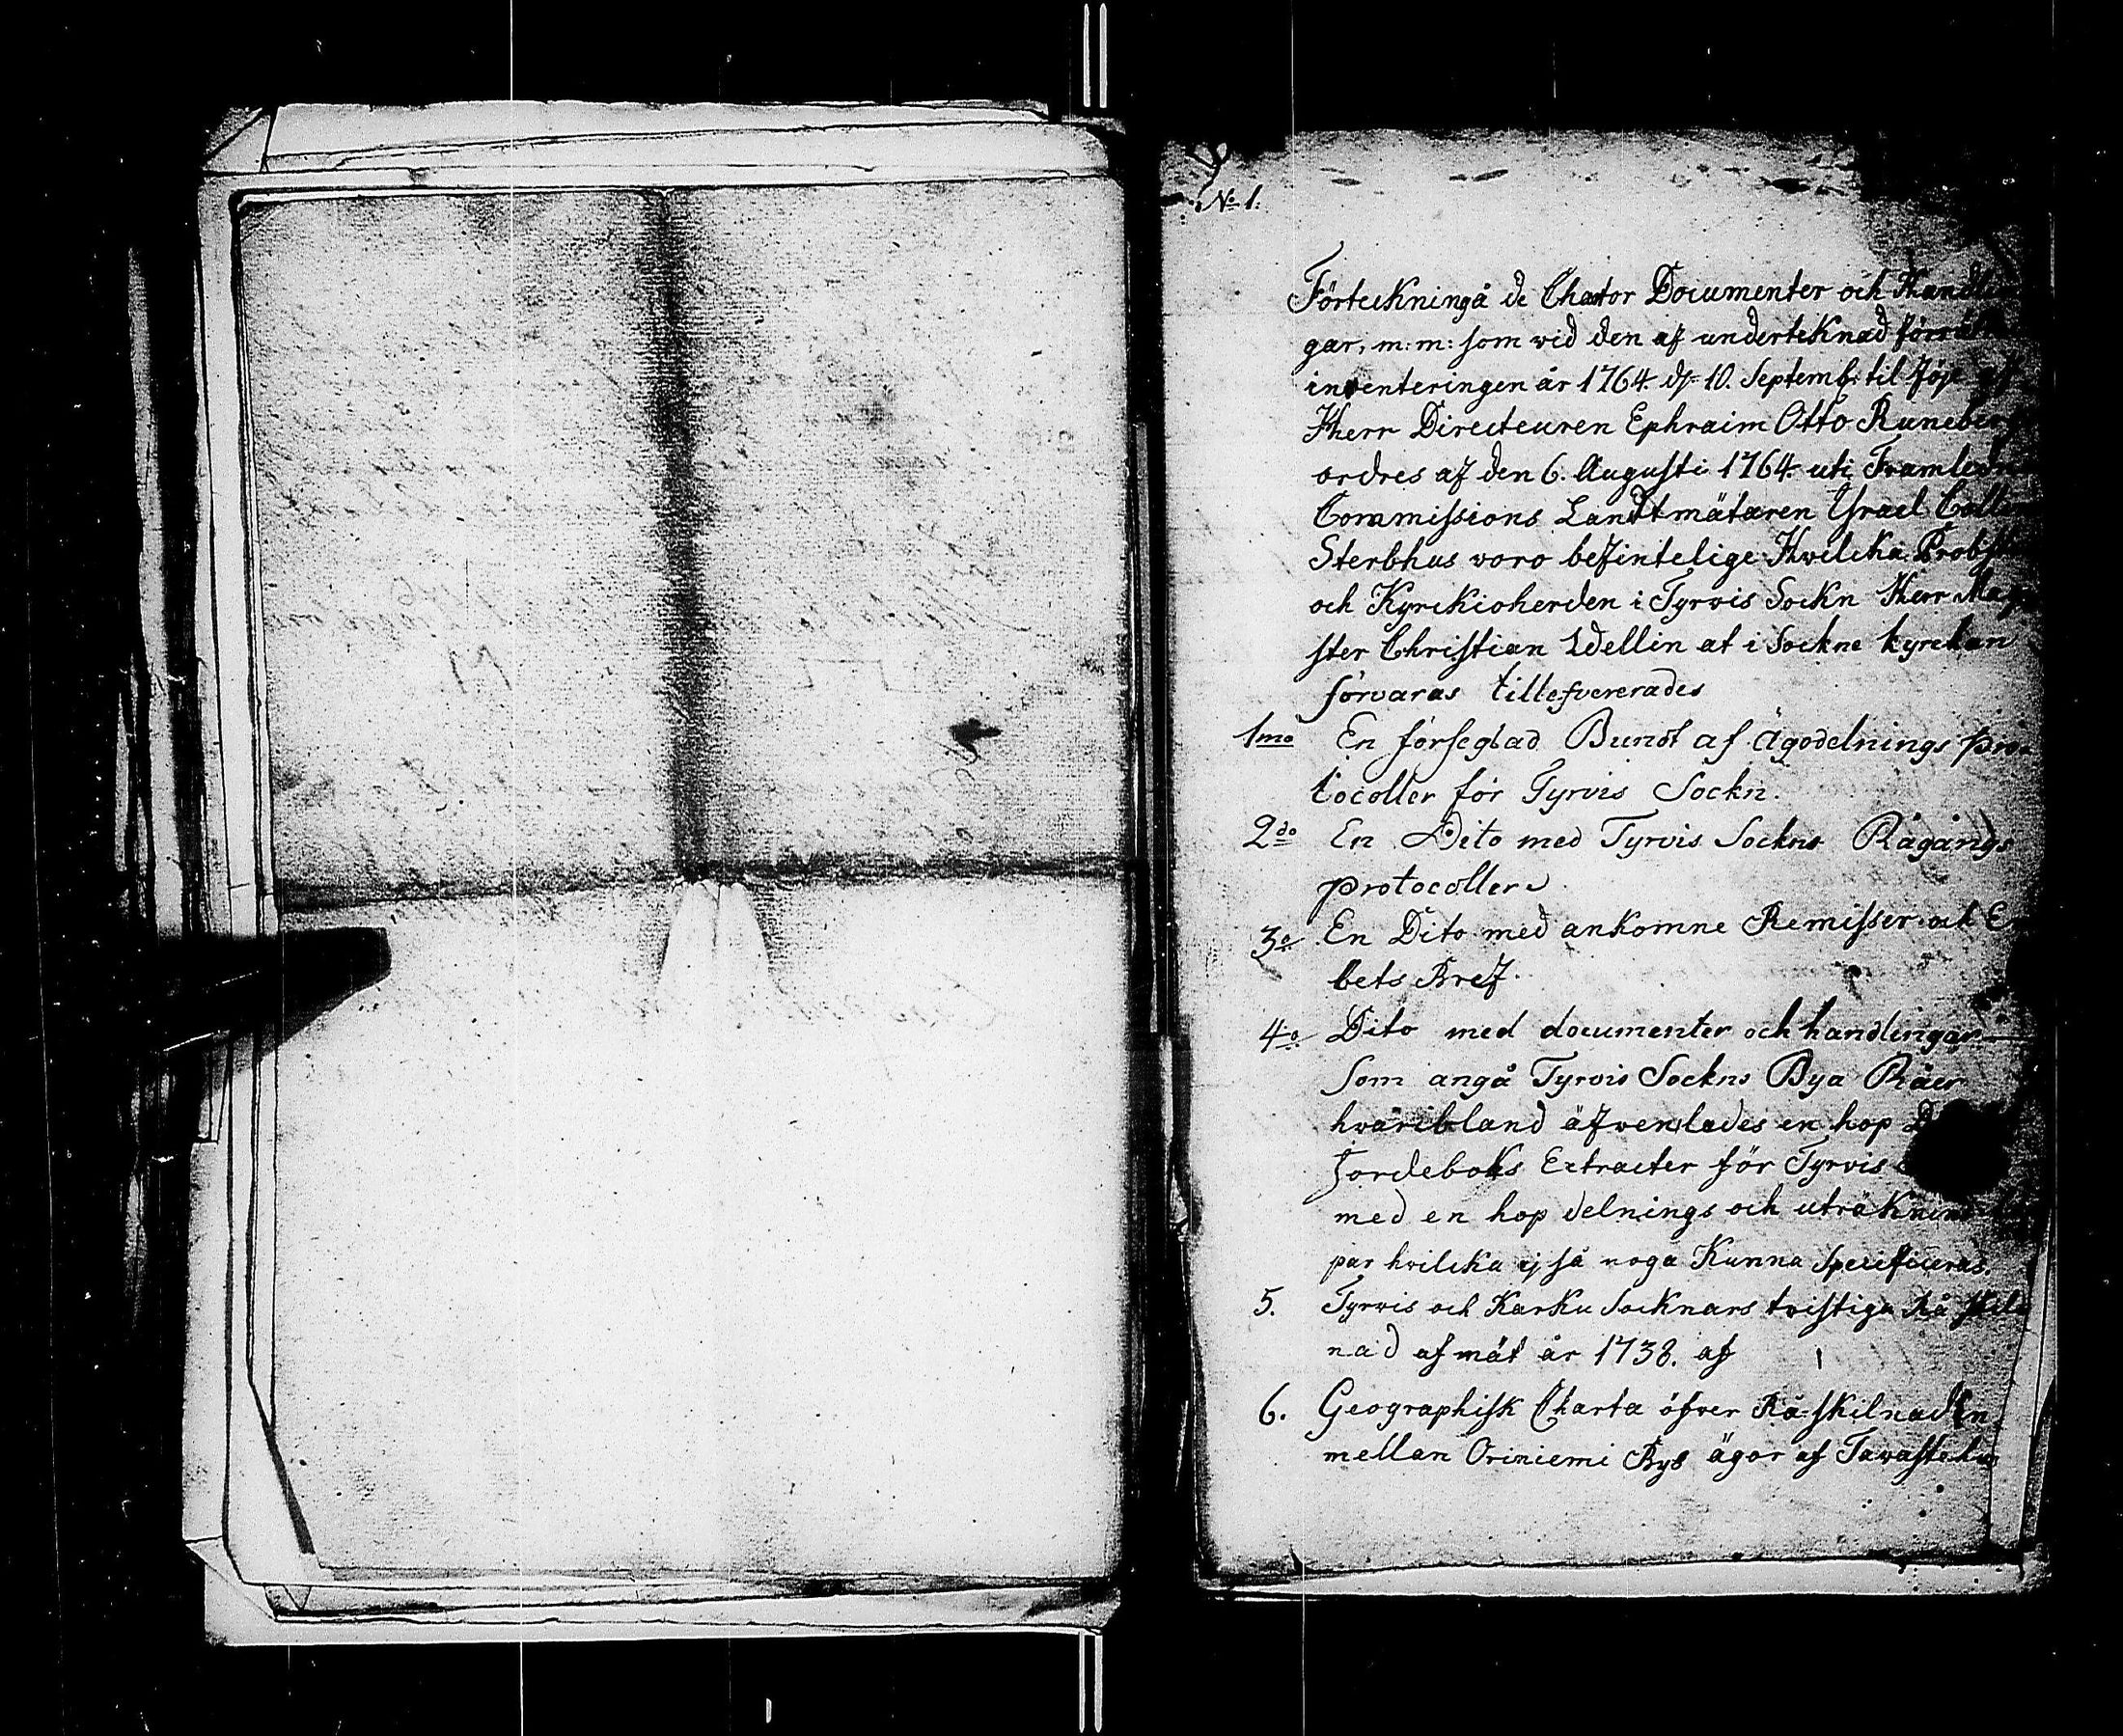 No 1.
Förteckningå de Chartor Documenter och Handlin
gar, m: m: som wid den af underteknad förrät
inventeringen år 1764 d. 10. Septemb: til föje af
Herr Directeuren Ephraim Otto Runeberg
ordres af den 6. Augusti 1764 uti Framledn
Commissions Landtmätaren Israel Collin
Sterbhus woro befintelige Hwilcka Probst
och Kyrckioherden i Tyrvis Sockn Herr Magi
ster Christian Wellin at i Sockne kyrckan
förvaras tillefvererades
1mo En förseglad Bundt af Ägodelnings pro
tocoller för Tyrvis Sockn.
2do En Dito med Tyrvis Sockns Rågångs
protocoller
3o En Dito med ankomne Remisser och Em
bets Bref.
4o Dito med documenter och handlingar
Som angå Tyrvis Sockns Bya Råer
hvaribland äfven lades en hop
Jordeboks Extracter för Tyrvis
med en hop delnings och uträknings
par hvilcka ej så noga Kunna Specificeras.
5. Tyrvis och Karku Socknars tvistiga Rå Skil
nad af mät år 1738. af
6. Geographisk Charta öfver Rå-skilnaden
mellan Oriniemi Bys ägor af Tavastehus